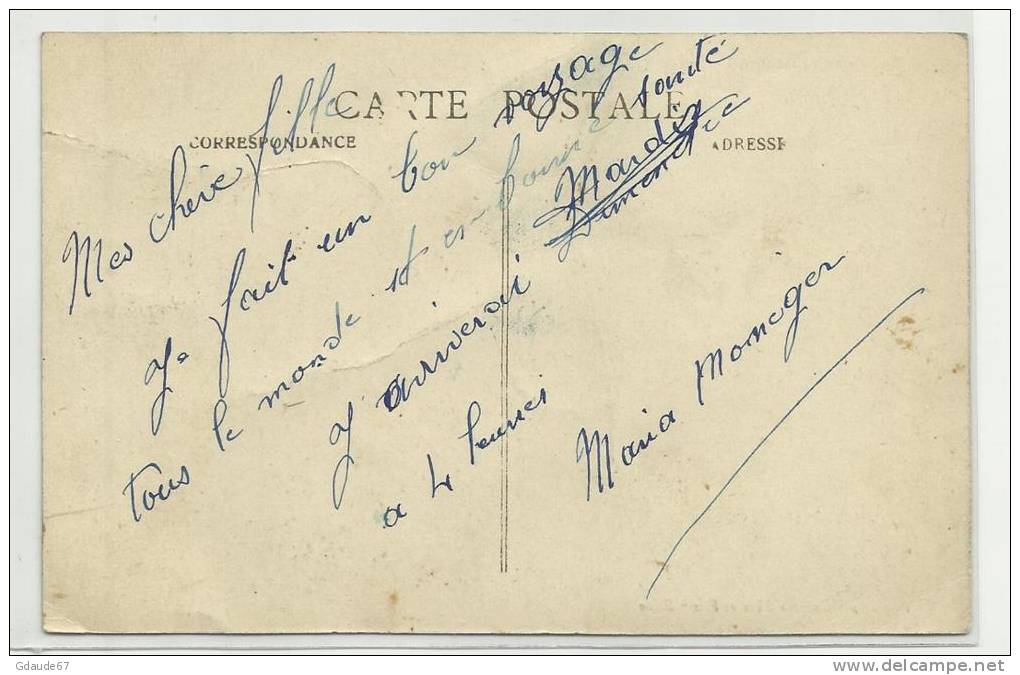 CARTE POSTALE
CORRESPONDANCE
ADRESSE
Mes chère fille
Je fait un bon voyage
tous le monde et en bonne santé
J arriverai Mardi
Dimanche
a 4 heures
Maria Moneger
Gdaude67
www.delcampe.net